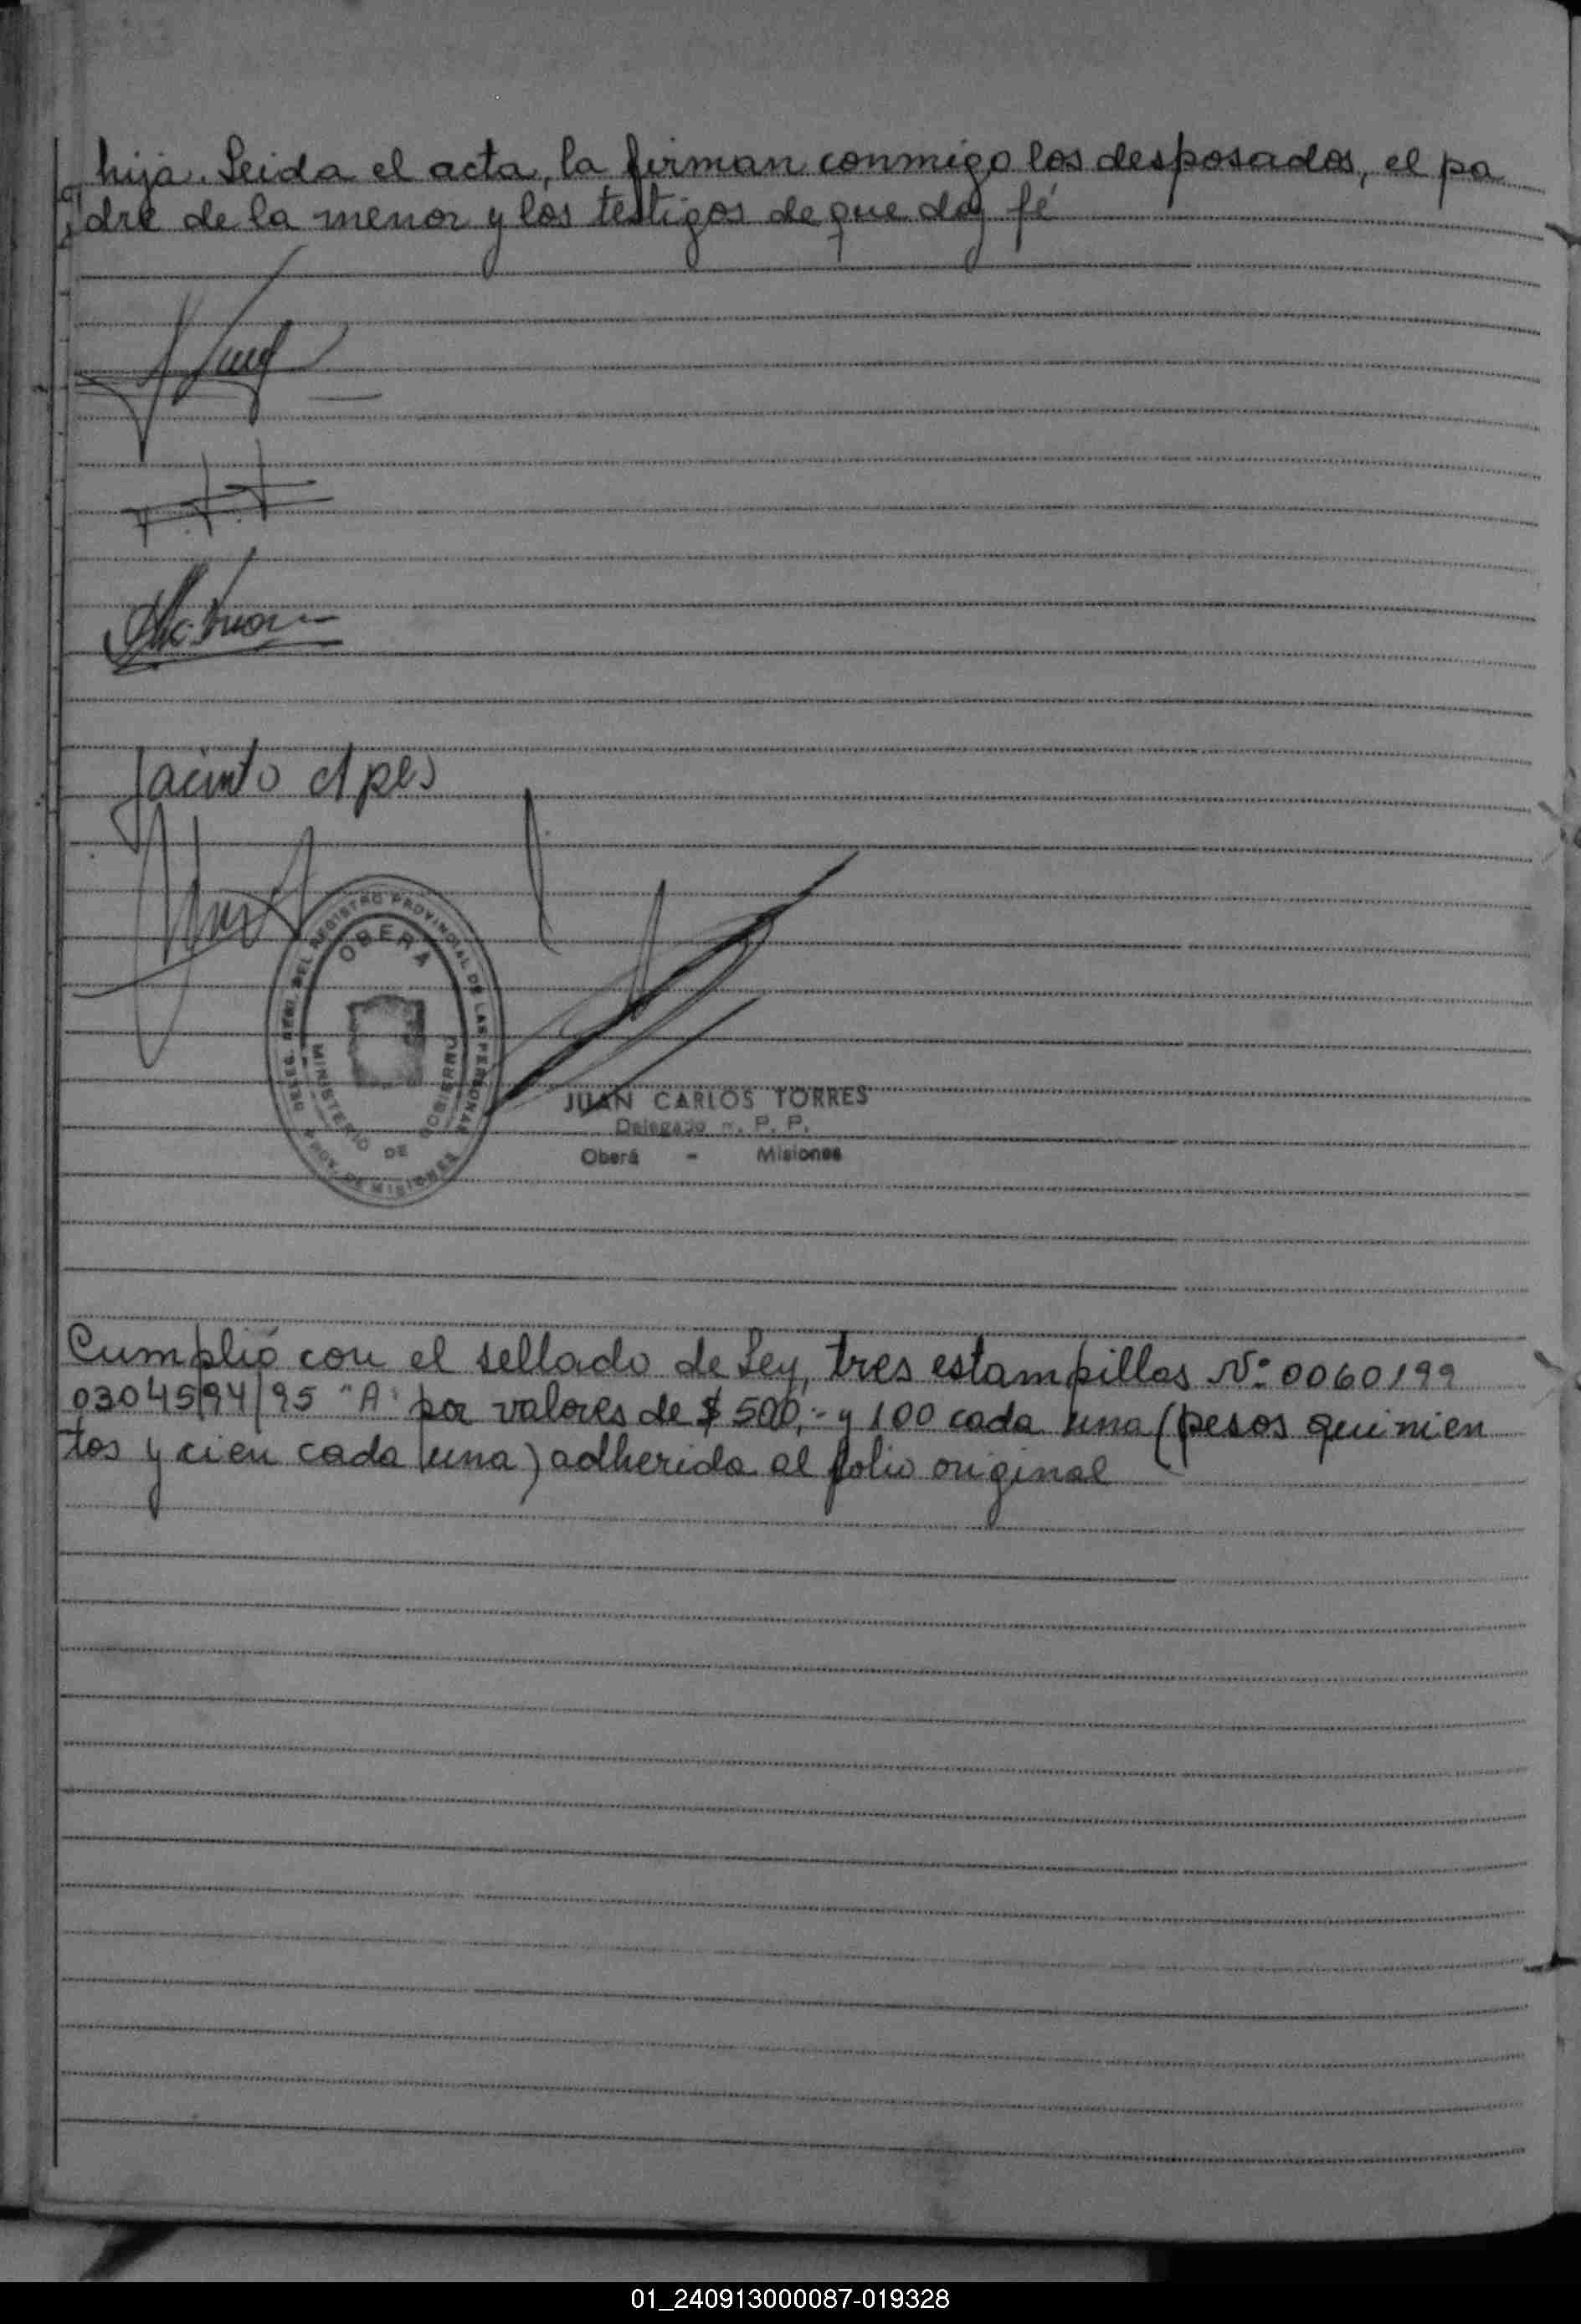 hija. Leida el acta, la firman conmigo los desposados, el pa
dre de la menor y los testigos de que doy fé
Jacinto
OBERA
REGISTRO PROVINCIAL DE LAS PERSONAS
MINISTERIO DE GOBIERNO
PROV. DE MISIONES
JUAN CARLOS TORRES
Delegado R. P. P.
Oberá - Misiones
Cumplió con el sellado de Ley, tres estampillas Nº 0060199
0304594/95 "A" por valores de $ 500,- y 100 cada una (pesos quinien
tos y cien cada una) adherida al folio original
01_240913000087-019328